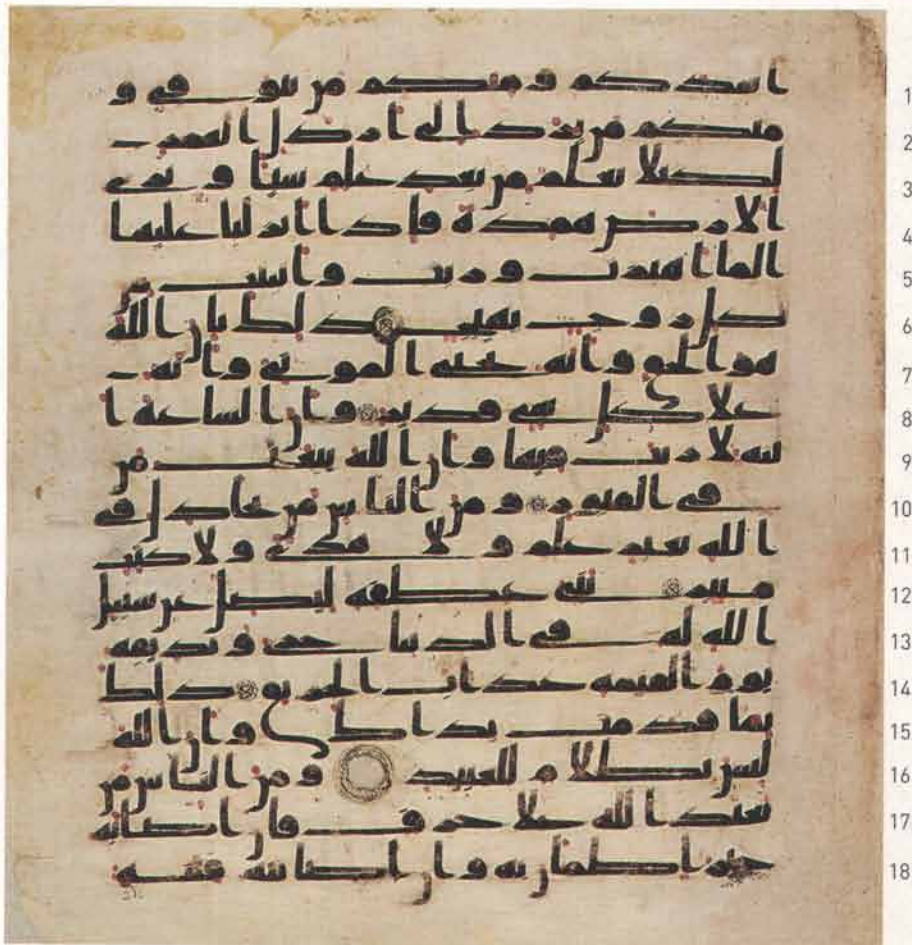 اشدكم ومنكم من يتوفى و 1
منكم من يرد الى ارذل العمر 2
لكيلا يعلم من بعد علم شيا وترى 3
الارض همدة فاذا انزلنا عليها 4
الما اهتزت وربت وانبتت من 5
كل زوج بهيج ذلك بان الله 6
هو الحق وانه يحيى الموتى وانه 7
علا كل شي قدير وان الساعة ا 8
تية لا ريب فيها وان الله يبعث من 9
في القبور ومن الناس من يجادل في 10
الله بغير علم ولا هدى ولا كتب 11
منير ثني عطفه ليضل عن سبيل 12
الله له في الدنيا خزي ونذيقه 13
يوم القيمة عذاب الحريق ذلك 14
بما قدمت يداك وان الله 15
ليس بظلام للعبيد ومن الناس من 16
يعبد الله علا حرف فان اصابه 17
خير اطمان به وان اصابته فتنة 18